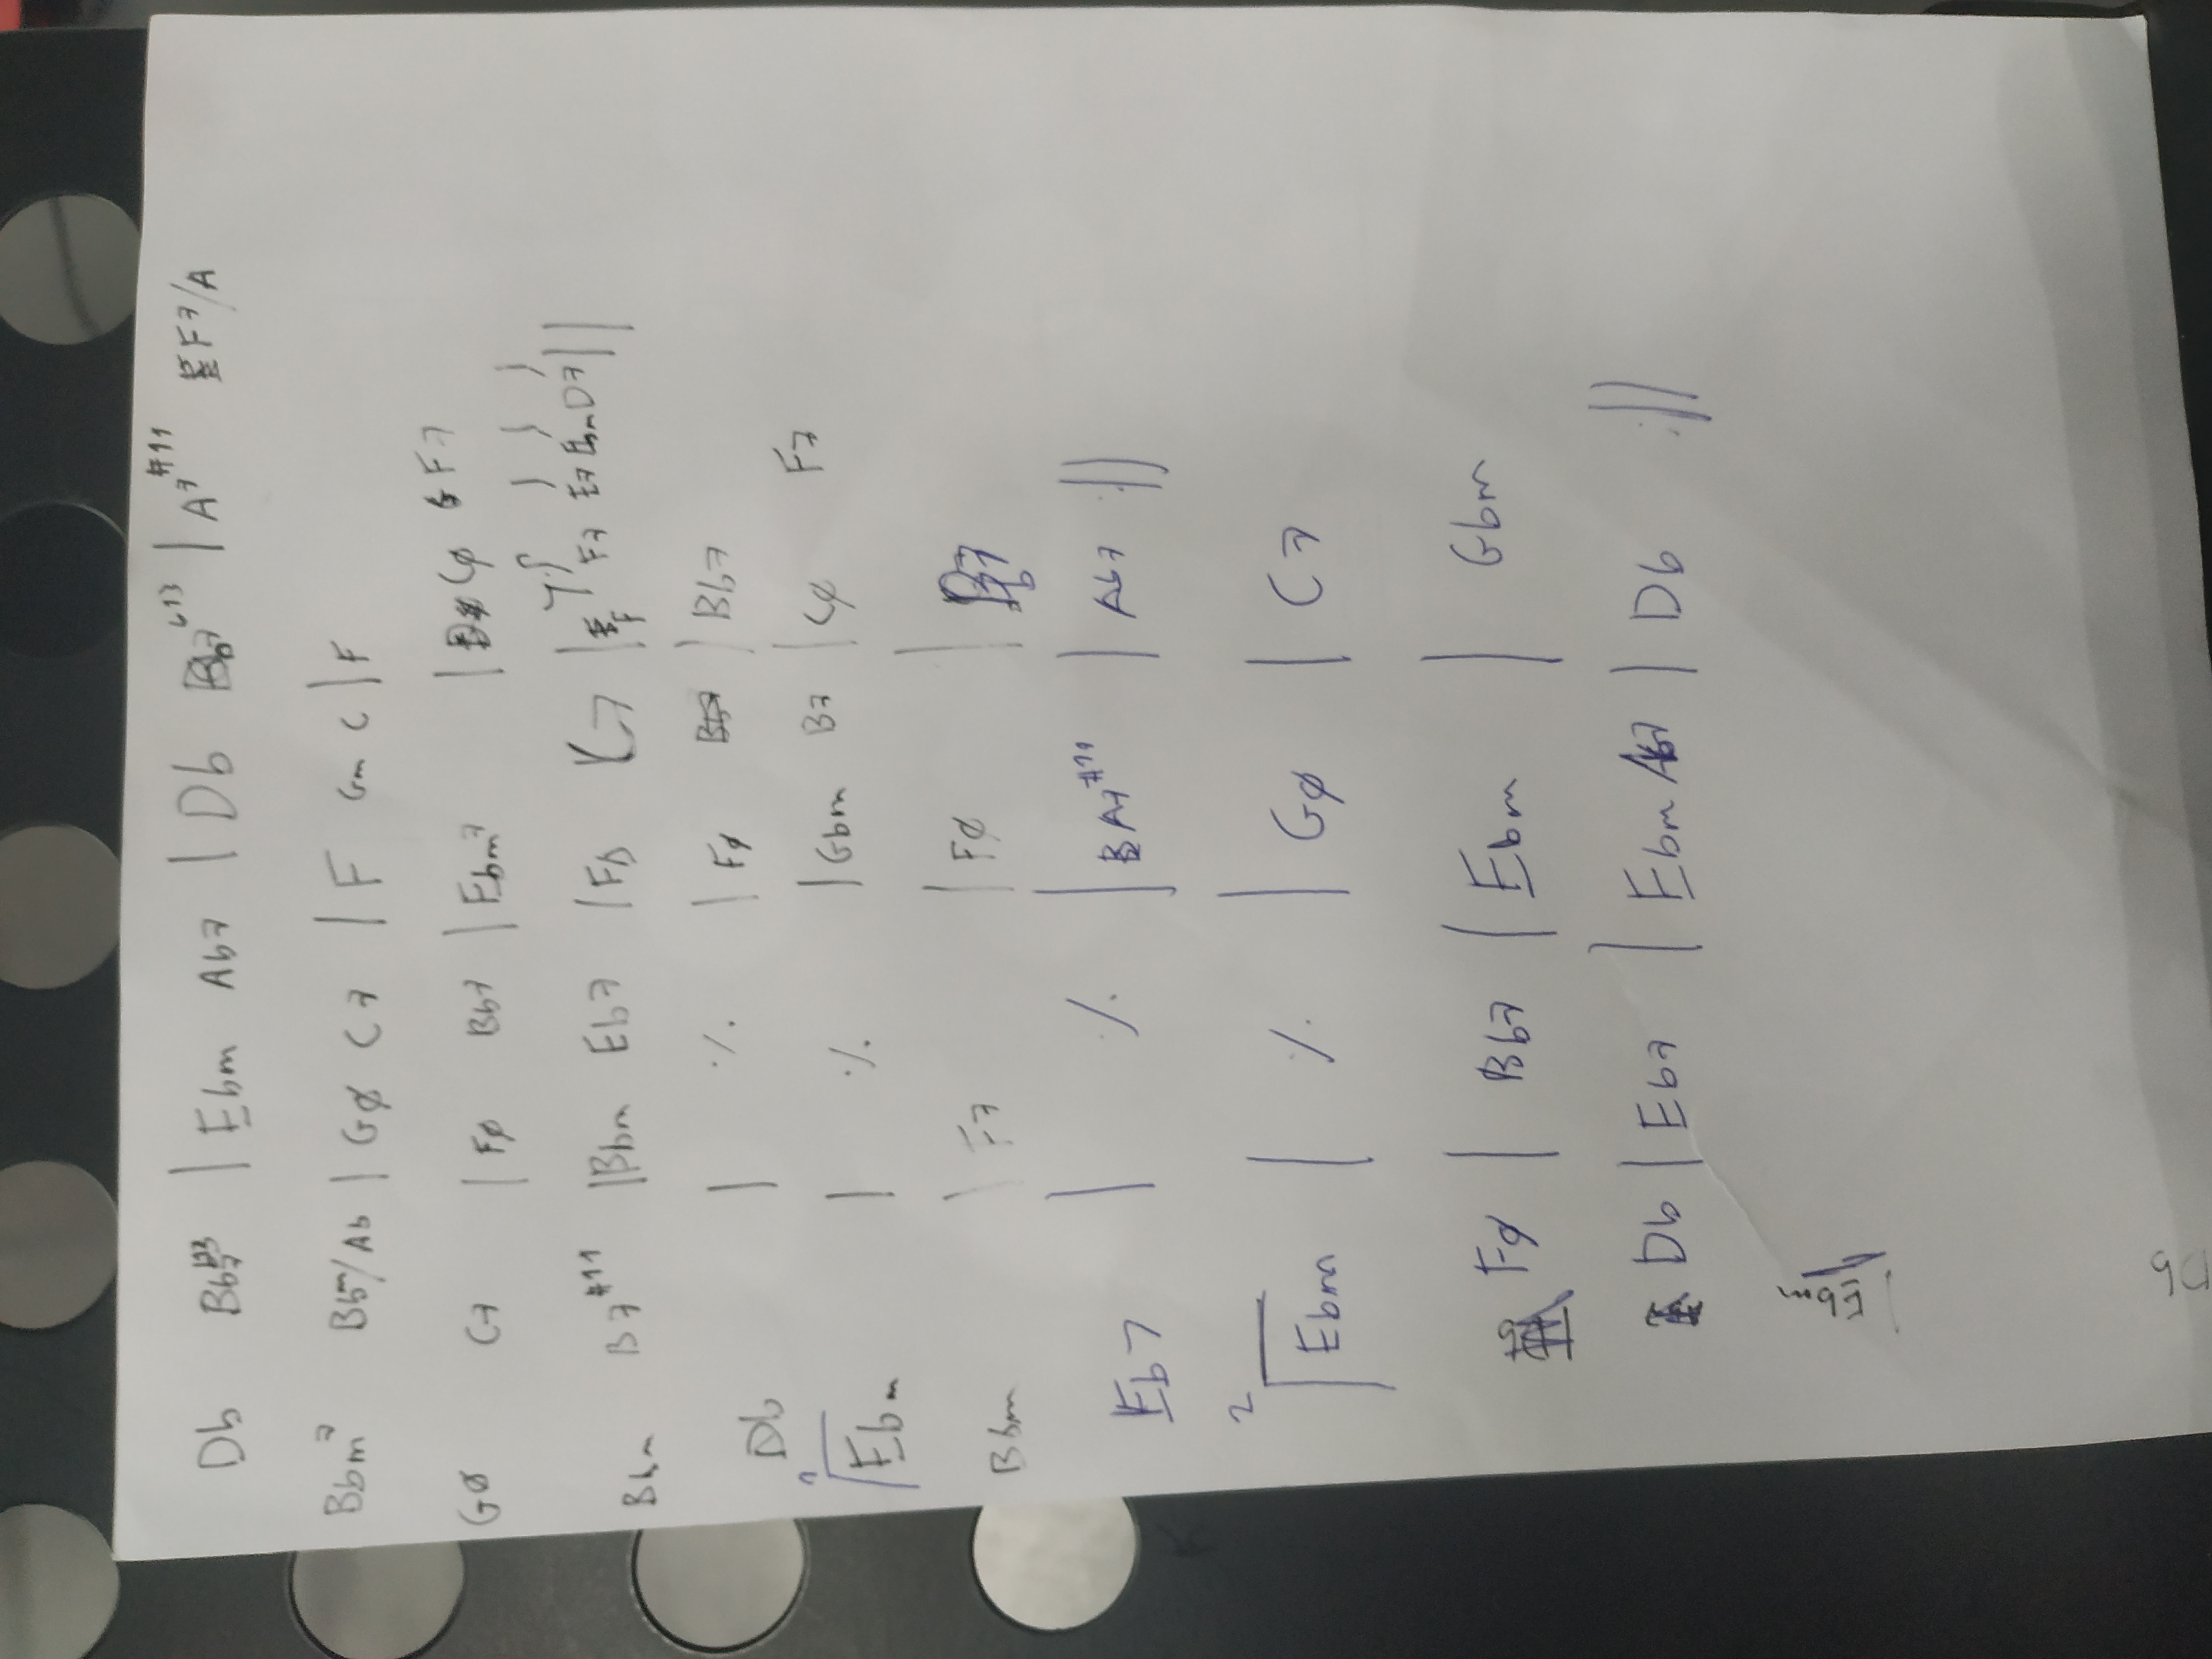 Db Bb7b13 | Ebm Ab7 | Db Bb7b13 | A7#11 F7/A
Bbm7 Bbm/Ab | Gø C7 | F Gm C | F
Gø C7 | Fø Bb7 | Ebm7 | Cø F7
Bbm B7#11 | Bbm Eb7 | FΔ C7 | F F7 E7 Ebm D7 ||
Db | ٪ | Fø | Bb7
1 Ebm | ٪ | Gbm B7 | Cø F7
Bbm | F7 | Fø | Bb7
Eb7 | ٪ | A7#11 | Ab7 :||
2 Ebm | ٪ | Gø | C7
Fø | Bb7 | Ebm | Gbm
Db | Eb7 | Ebm Ab7 | Db :||
| Ebm
Db